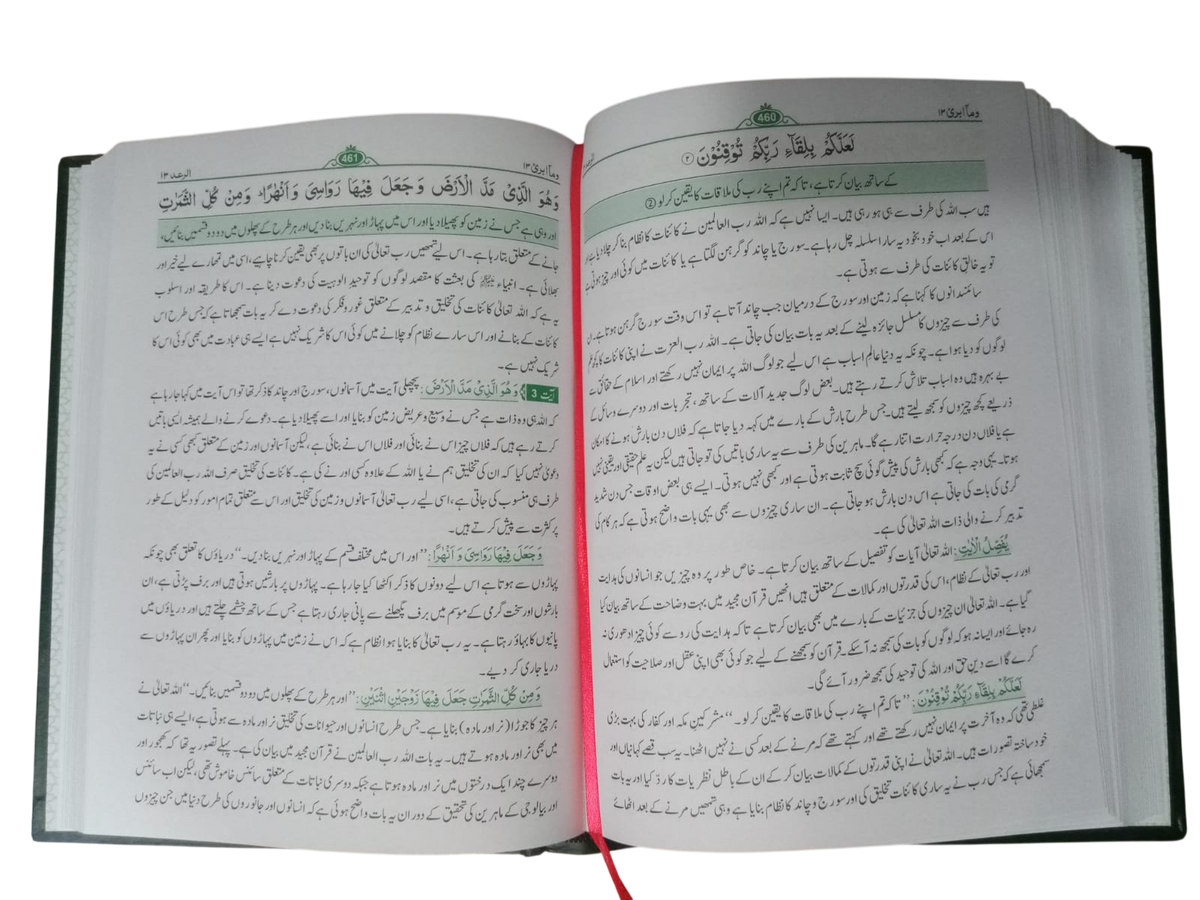 وما ابرئ ۱۳
460
الرعد ۱۳
لَعَلَّكُمْ بِلِقَآءِ رَبِّكُمْ تُوْقِنُوْنَ ۲
کے ساتھ بیان کرتا ہے، تاکہ تم اپنے رب کی ملاقات کا یقین کرلو ②
ہیں سب اللہ کی طرف سے ہی ہو رہی ہیں۔ ایسا نہیں ہے کہ اللہ رب العالمین نے کائنات کا نظام بنا کر چلا دیا ہے اور
اس کے بعد اب خود بخود یہ سارا سلسلہ چل رہا ہے۔ سورج یا چاند کو گرہن لگتا ہے یا کائنات میں کوئی اور چیز ہوتی ہے
تو یہ خالقِ کائنات کی طرف سے ہوتی ہے۔
سائنسدانوں کا کہنا ہے کہ زمین اور سورج کے درمیان جب چاند آتا ہے تو اس وقت سورج گرہن ہوتا ہے۔ ان
کی طرف سے چیزوں کا مسلسل جائزہ لینے کے بعد یہ بات بیان کی جاتی ہے۔ اللہ رب العزت نے اپنی کائنات کا کچھ علم
لوگوں کو دیا ہوا ہے۔ چونکہ یہ دنیا عالمِ اسباب ہے اس لیے جو لوگ اللہ پر ایمان نہیں رکھتے اور اسلام کے حقائق سے
بے بہرہ ہیں وہ اسباب تلاش کرتے رہتے ہیں۔ بعض لوگ جدید آلات کے ساتھ، تجربات اور دوسرے وسائل کے
ذریعے کچھ چیزوں کو سمجھ لیتے ہیں۔ جس طرح بارش کے بارے میں کہہ دیا جاتا ہے کہ فلاں دن بارش ہونے کا امکان
ہے یا فلاں دن درجہ حرارت اتنا رہے گا۔ ماہرین کی طرف سے یہ ساری باتیں کی تو جاتی ہیں لیکن یہ علم حقیقی اور یقینی نہیں
ہوتا۔ یہی وجہ ہے کہ کبھی بارش کی پیش گوئی سچ ثابت ہوتی ہے اور کبھی نہیں ہوتی۔ ایسے ہی بعض اوقات جس دن شدید
گرمی کی بات کی جاتی ہے اس دن بارش ہو جاتی ہے۔ ان ساری چیزوں سے بھی یہی بات واضح ہوتی ہے کہ ہر کام کی
تدبیر کرنے والی ذات اللہ تعالیٰ کی ہے۔
يُفَصِّلُ الْاٰيٰتِ: اللہ تعالیٰ آیات کو تفصیل کے ساتھ بیان کرتا ہے۔ خاص طور پر وہ چیزیں جو انسانوں کی ہدایت
اور رب تعالیٰ کے نظام، اس کی قدرتوں اور کمالات کے متعلق ہیں انھیں قرآن مجید میں بہت وضاحت کے ساتھ بیان کیا
گیا ہے۔ اللہ تعالیٰ ان چیزوں کی جزئیات کے بارے میں بھی بیان کرتا ہے تاکہ ہدایت کی رو سے کوئی چیز ادھوری نہ
رہ جائے اور ایسا نہ ہو کہ لوگوں کو بات کی سمجھ نہ آسکے۔ قرآن کو سمجھنے کے لیے جو کوئی بھی اپنی عقل اور صلاحیت کو استعمال
کرے گا اسے دینِ حق اور اللہ کی توحید کی سمجھ ضرور آئے گی۔
لَعَلَّكُمْ بِلِقَآءِ رَبِّكُمْ تُوْقِنُوْنَ: ’’تاکہ تم اپنے رب کی ملاقات کا یقین کرلو۔‘‘ مشرکینِ مکہ اور کفار کی بہت بڑی
غلطی تھی کہ وہ آخرت پر ایمان نہیں رکھتے تھے اور کہتے تھے کہ مرنے کے بعد کسی نے نہیں اٹھنا۔ یہ سب قصے کہانیاں اور
خود ساختہ تصورات ہیں۔ اللہ تعالیٰ نے اپنی قدرتوں کے کمالات بیان کر کے ان کے باطل نظریات کا رد کیا اور یہ بات
سمجھائی ہے کہ جس رب نے یہ ساری کائنات تخلیق کی اور سورج و چاند کا نظام بنایا ہے وہی تمھیں مرنے کے بعد اٹھائے
وما ابرئ ۱۳
461
الرعد ۱۳
وَهُوَ الَّذِيْ مَدَّ الْاَرْضَ وَجَعَلَ فِيْهَا رَوَاسِيَ وَاَنْهٰرًا ؕ وَمِنْ كُلِّ الثَّمَرٰتِ
اور وہی ہے جس نے زمین کو پھیلا دیا اور اس میں پہاڑ اور نہریں بنا دیں اور ہر طرح کے پھلوں میں دو دو قسمیں بنائیں،
جانے کے متعلق بتا رہا ہے۔ اس لیے تمھیں رب تعالیٰ کی ان باتوں پر بھی یقین کرنا چاہیے، اسی میں تمھارے لیے خیر اور
بھلائی ہے۔ انبیاء ﷺ کی بعثت کا مقصد لوگوں کو توحیدِ الوہیت کی دعوت دینا ہے۔ اس کا طریقہ اور اسلوب
یہ ہے کہ اللہ تعالیٰ کائنات کی تخلیق و تدبیر کے متعلق غور و فکر کی دعوت دے کر یہ بات سمجھاتا ہے کہ جس طرح اس
کائنات کے بنانے اور اس سارے نظام کو چلانے میں کوئی اس کا شریک نہیں ہے ایسے ہی عبادت میں بھی کوئی اس کا
شریک نہیں ہے۔
آیت 3 وَهُوَ الَّذِيْ مَدَّ الْاَرْضَ: پچھلی آیت میں آسمانوں، سورج اور چاند کا ذکر تھا تو اس آیت میں کہا جا رہا ہے
کہ اللہ ہی وہ ذات ہے جس نے وسیع و عریض زمین کو بنایا اور اسے پھیلا دیا ہے۔ دعوے کرنے والے ہمیشہ ایسی باتیں
کرتے رہے ہیں کہ فلاں چیز اس نے بنائی اور فلاں اس نے بنائی ہے، لیکن آسمانوں اور زمین کے متعلق کبھی کسی نے یہ
دعویٰ نہیں کیا کہ ان کی تخلیق ہم نے یا اللہ کے علاوہ کسی اور نے کی ہے۔ کائنات کی تخلیق صرف اللہ رب العالمین کی
طرف ہی منسوب کی جاتی ہے، اسی لیے رب تعالیٰ آسمانوں و زمین کی تخلیق اور اس سے متعلق تمام امور کو دلیل کے طور
پر کثرت سے پیش کرتے ہیں۔
وَجَعَلَ فِيْهَا رَوَاسِيَ وَاَنْهٰرًا: ’’اور اس میں مختلف قسم کے پہاڑ اور نہریں بنا دیں۔‘‘ دریاؤں کا تعلق بھی چونکہ
پہاڑوں سے ہوتا ہے اس لیے دونوں کا ذکر اکٹھا کیا جا رہا ہے۔ پہاڑوں پر بارشیں ہوتی ہیں اور برف پڑتی ہے، ان
بارشوں اور سخت گرمی کے موسم میں برف پگھلنے سے پانی جاری رہتا ہے جس کے ساتھ چشمے چلتے ہیں اور دریاؤں میں
پانیوں کا بہاؤ رہتا ہے۔ یہ رب تعالیٰ کا بنایا ہوا نظام ہے کہ اس نے زمین میں پہاڑوں کو بنایا اور پھر ان پہاڑوں سے
دریا جاری کر دیے۔
وَمِنْ كُلِّ الثَّمَرٰتِ جَعَلَ فِيْهَا زَوْجَيْنِ اثْنَيْنِ: ’’اور ہر طرح کے پھلوں میں دو دو قسمیں بنائیں۔‘‘ اللہ تعالیٰ نے
ہر چیز کا جوڑا (نر اور مادہ) بنایا ہے۔ جس طرح انسانوں اور حیوانات کی تخلیق نر اور مادہ سے ہوتی ہے، ایسے ہی نباتات
میں بھی نر اور مادہ ہوتے ہیں۔ یہ بات اللہ رب العالمین نے قرآن مجید میں بیان کی ہے۔ پہلے تصور یہ تھا کہ کھجور اور
دوسرے چند ایک درختوں میں نر اور مادہ ہوتا ہے جبکہ دوسری نباتات کے متعلق سائنس خاموش تھی، لیکن اب سائنس
اور بیالوجی کے ماہرین کی تحقیق کے دوران یہ بات واضح ہوئی ہے کہ انسانوں اور جانوروں کی طرح دنیا میں جن چیزوں